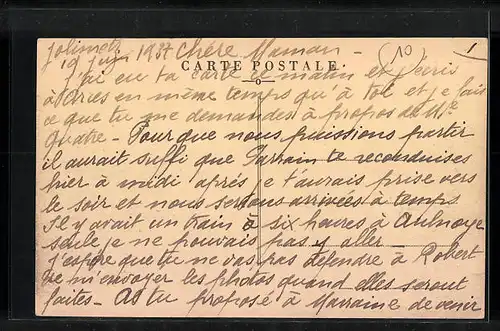 Jolimetz
19 juin 1937 Chère Maman -
(10)
1
CARTE POSTALE.
J'ai eu ta carte ce matin et j'écris
à Aries en même temps qu'à toi et je fais
ce que tu me demandes à propos de Mlle
Quatre - Pour que nous puissions partir
il aurait suffi que Parrain te reconduises
hier à midi après je t'aurais prise vers
le soir et nous serions arrivées à temps.
Il y avait un train à six heures à Aulnoye
seule je ne pouvais pas y aller -
j'espère que tu ne vas pas défendre à Robert
de m'envoyer les photos quand elles seront
faites - As tu proposé à Marraine de venir